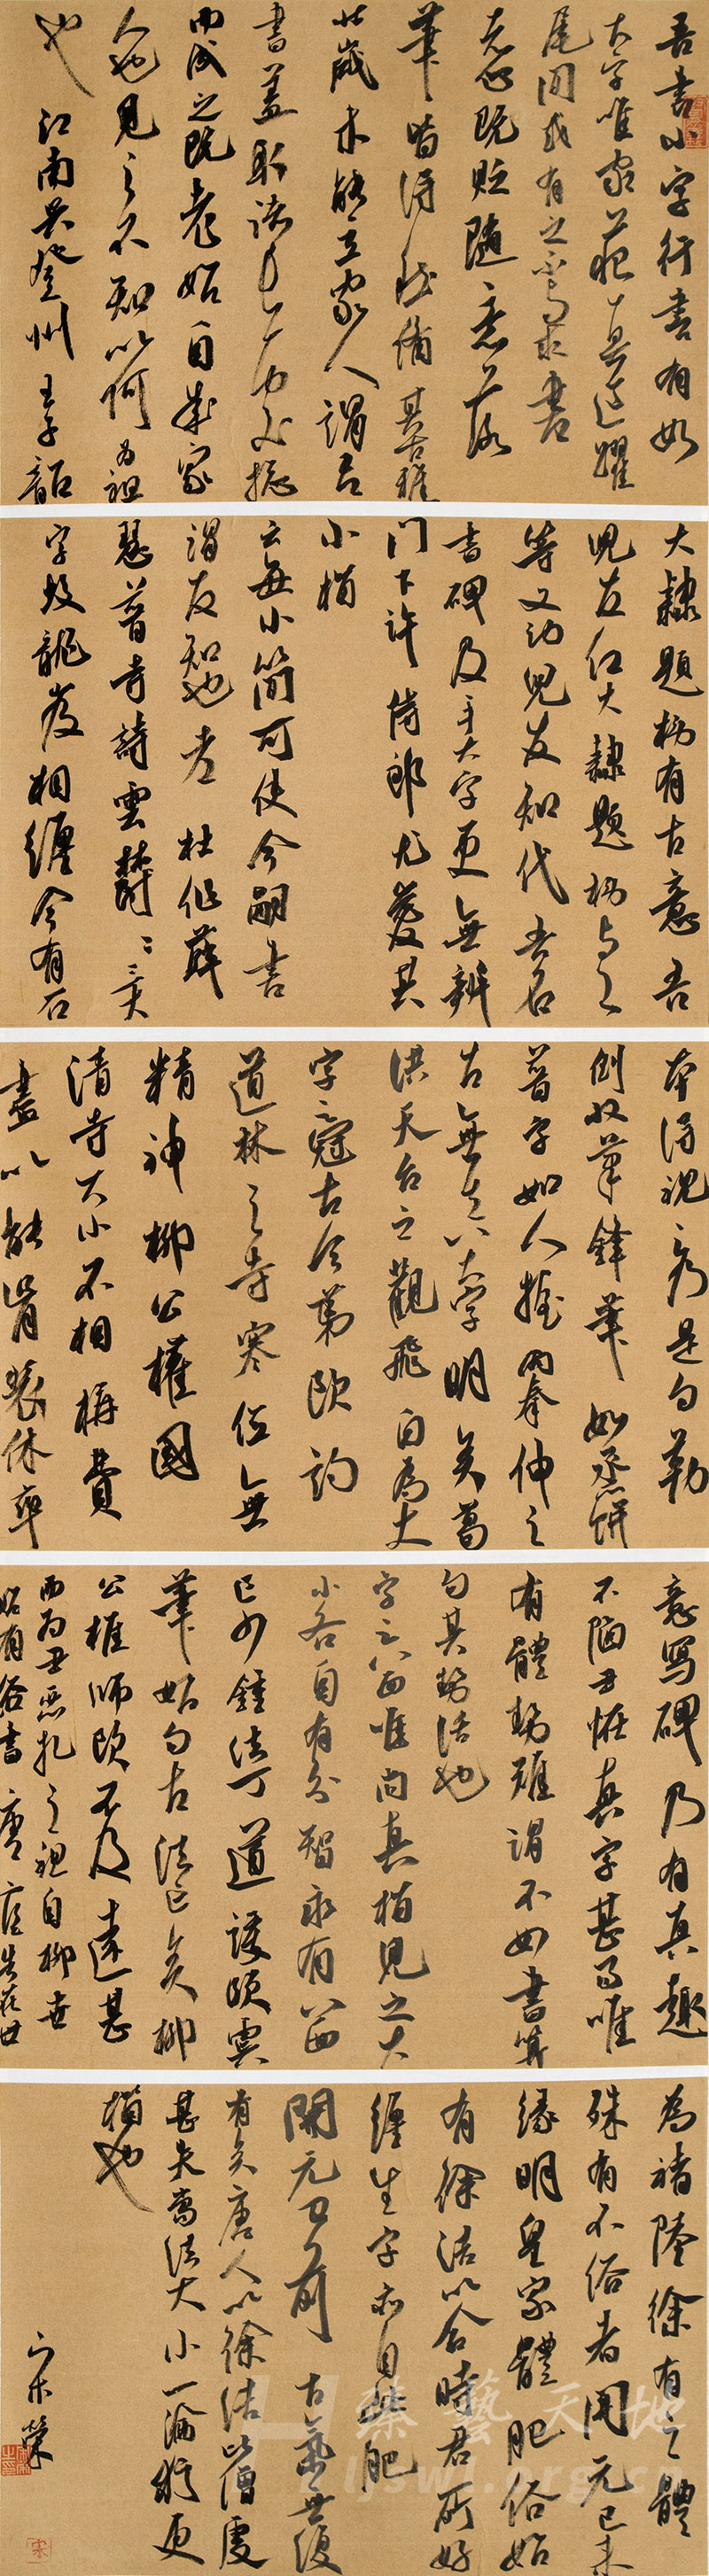 吾書小字行書有如
大字唯家藏真跋
尾間或有之不以與求書
者心既貯隨意落
筆皆得自然備其古雅
壯歲未能立家人謂吾
書蓋取諸長處總
而成之既老始自成家
人也見之不知以何為祖
也 江南吳登州王子韶
大隸題榜有古意吾
兒友仁大隸題榜與之
等又幼兒友知代吾名
書碑及手大字更無辨
門下許侍郎尤愛其
小楷
云每小簡可使令嗣書
謂友知也 老杜作薛
慧普寺詩雲鬱〻三大
字蛟龍岌相纏今有石
本得視之乃是勾勒
倒收筆鋒筆〻如蒸餅
普字如人握兩拳伸之
古無真大字明矣葛
洪天台之觀飛白為大
字之冠古今第歐詢
道林之寺寒儉無
精神柳公權國
清寺大小不相稱費
盡骨裴休率
意寫碑乃有真趣
不陷丑怪真字甚易唯
有體勢難謂不如畫算
勻其勢活也
字之八面唯尚真楷見之大
小各自有分智永有八面
已少鍾法丁道護歐虞
筆始勻古法亡矣柳
公權師歐不及遠甚
而為丑惡札之祖自柳世
始有俗書 唐官告在世
為褚陸徐有之體
殊有不俗者開元已來
緣明皇字體肥俗始
有徐浩以合時君所好
經生字亦自此肥
開元已前古氣無復
有矣唐人以徐浩比僧虔
甚失當浩大小一倫猶更
楷也
臻藝天地